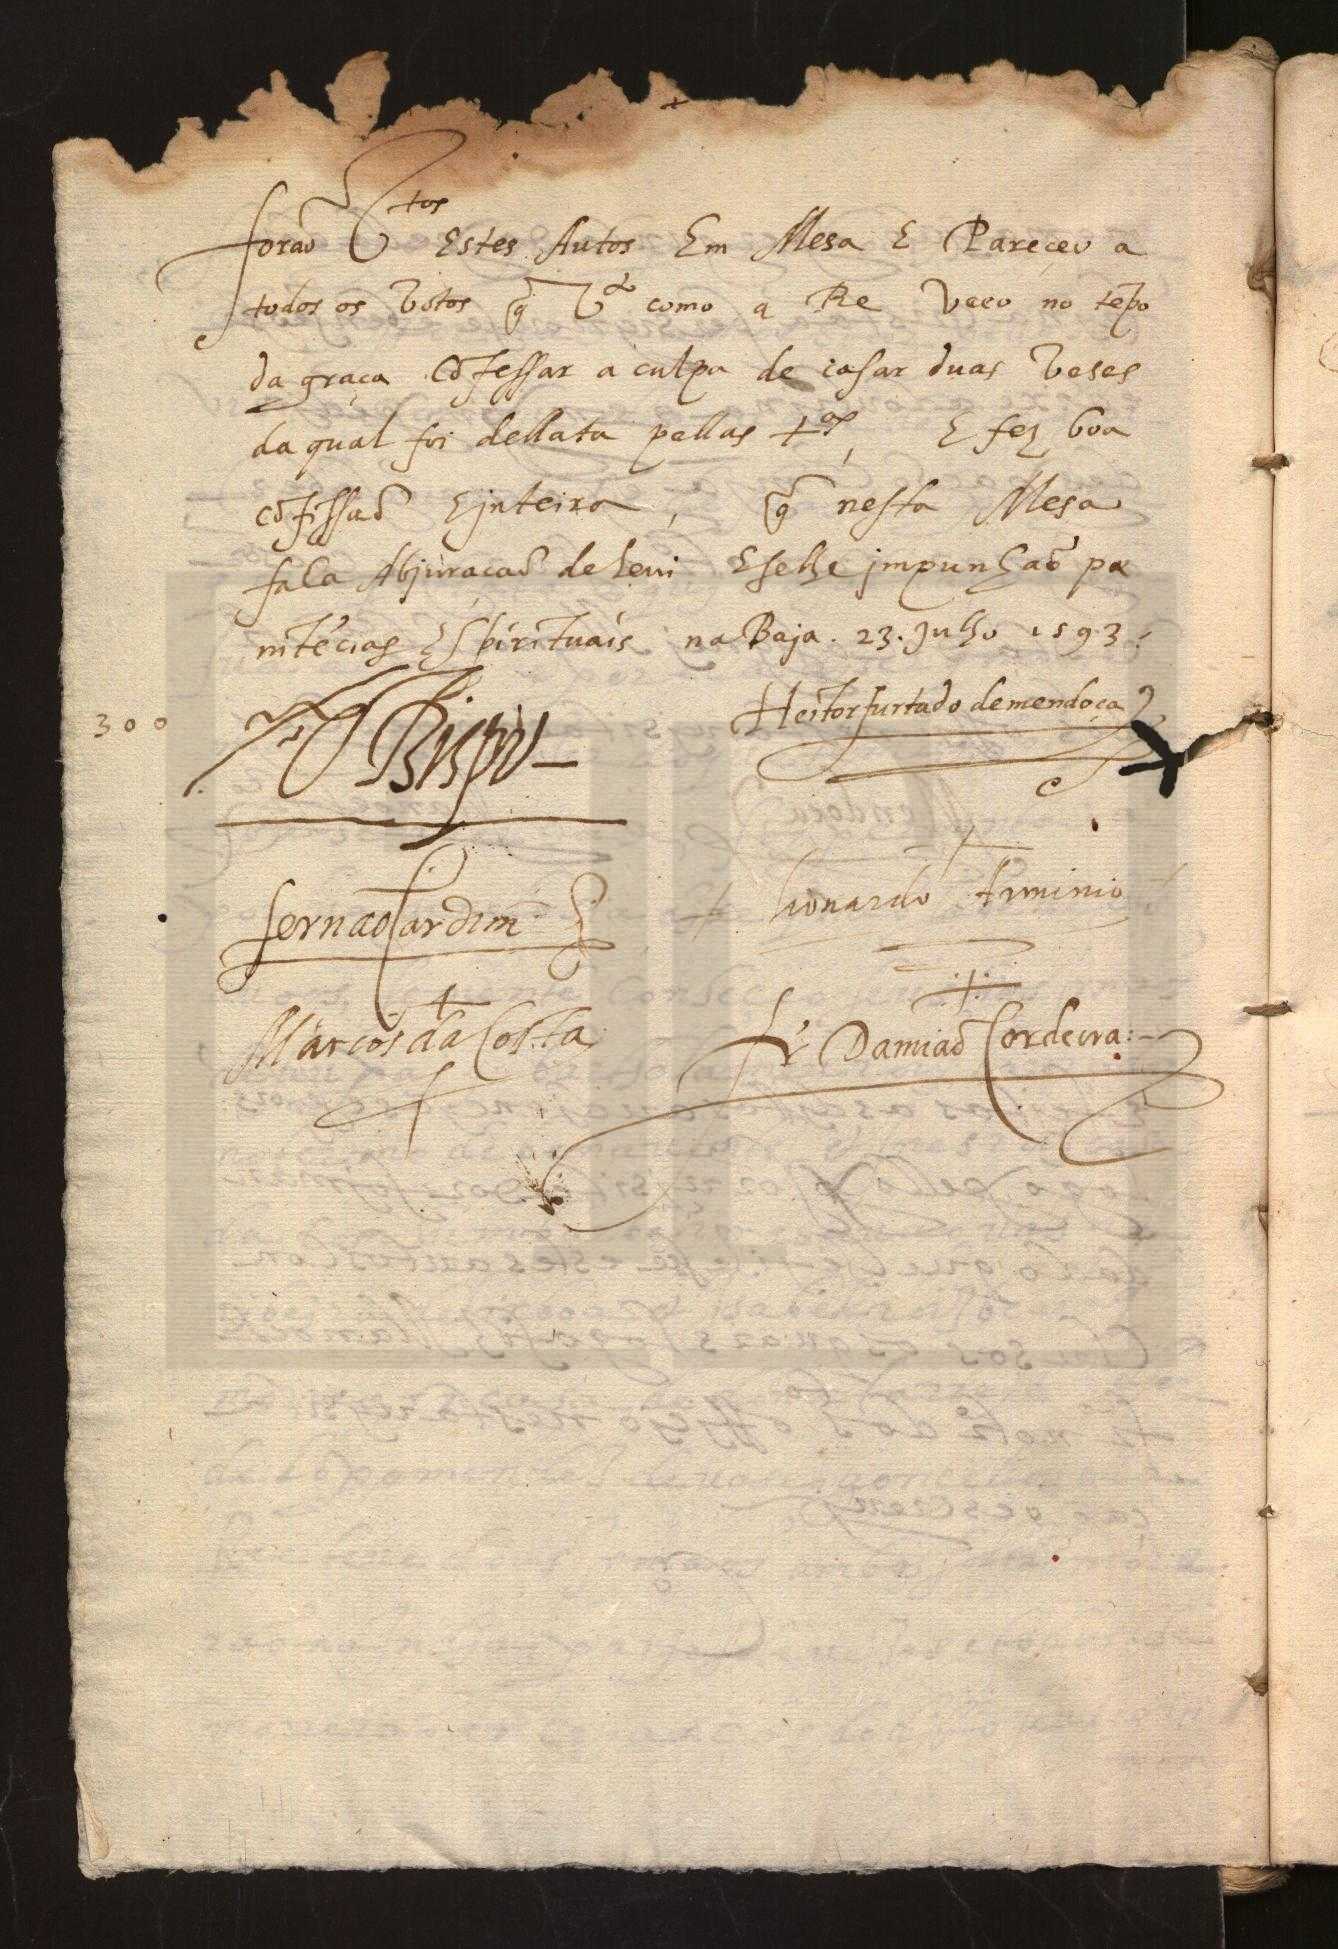 forão Vtos Estes Autos Em Mesa E Pareçeo a
todos os Votos q̃ Vto como a Re veo no tẽpo
da graça Cõfessar a culpa de casar duas veses
da qual foi dellata pellas +as, E fez boa
cõfissão E jnteira, q̃ nesta Mesa
faça Abjuração de Leui E selhe jmpunhão pæ
nitẽcias Espirituais na Baja. 23. Julho 1593.
Heitor furtado de mendoça
300
Bispo
fernão Cardim
Lionardo Arminio
Marcos da Costa
fr Damião Cordeiro